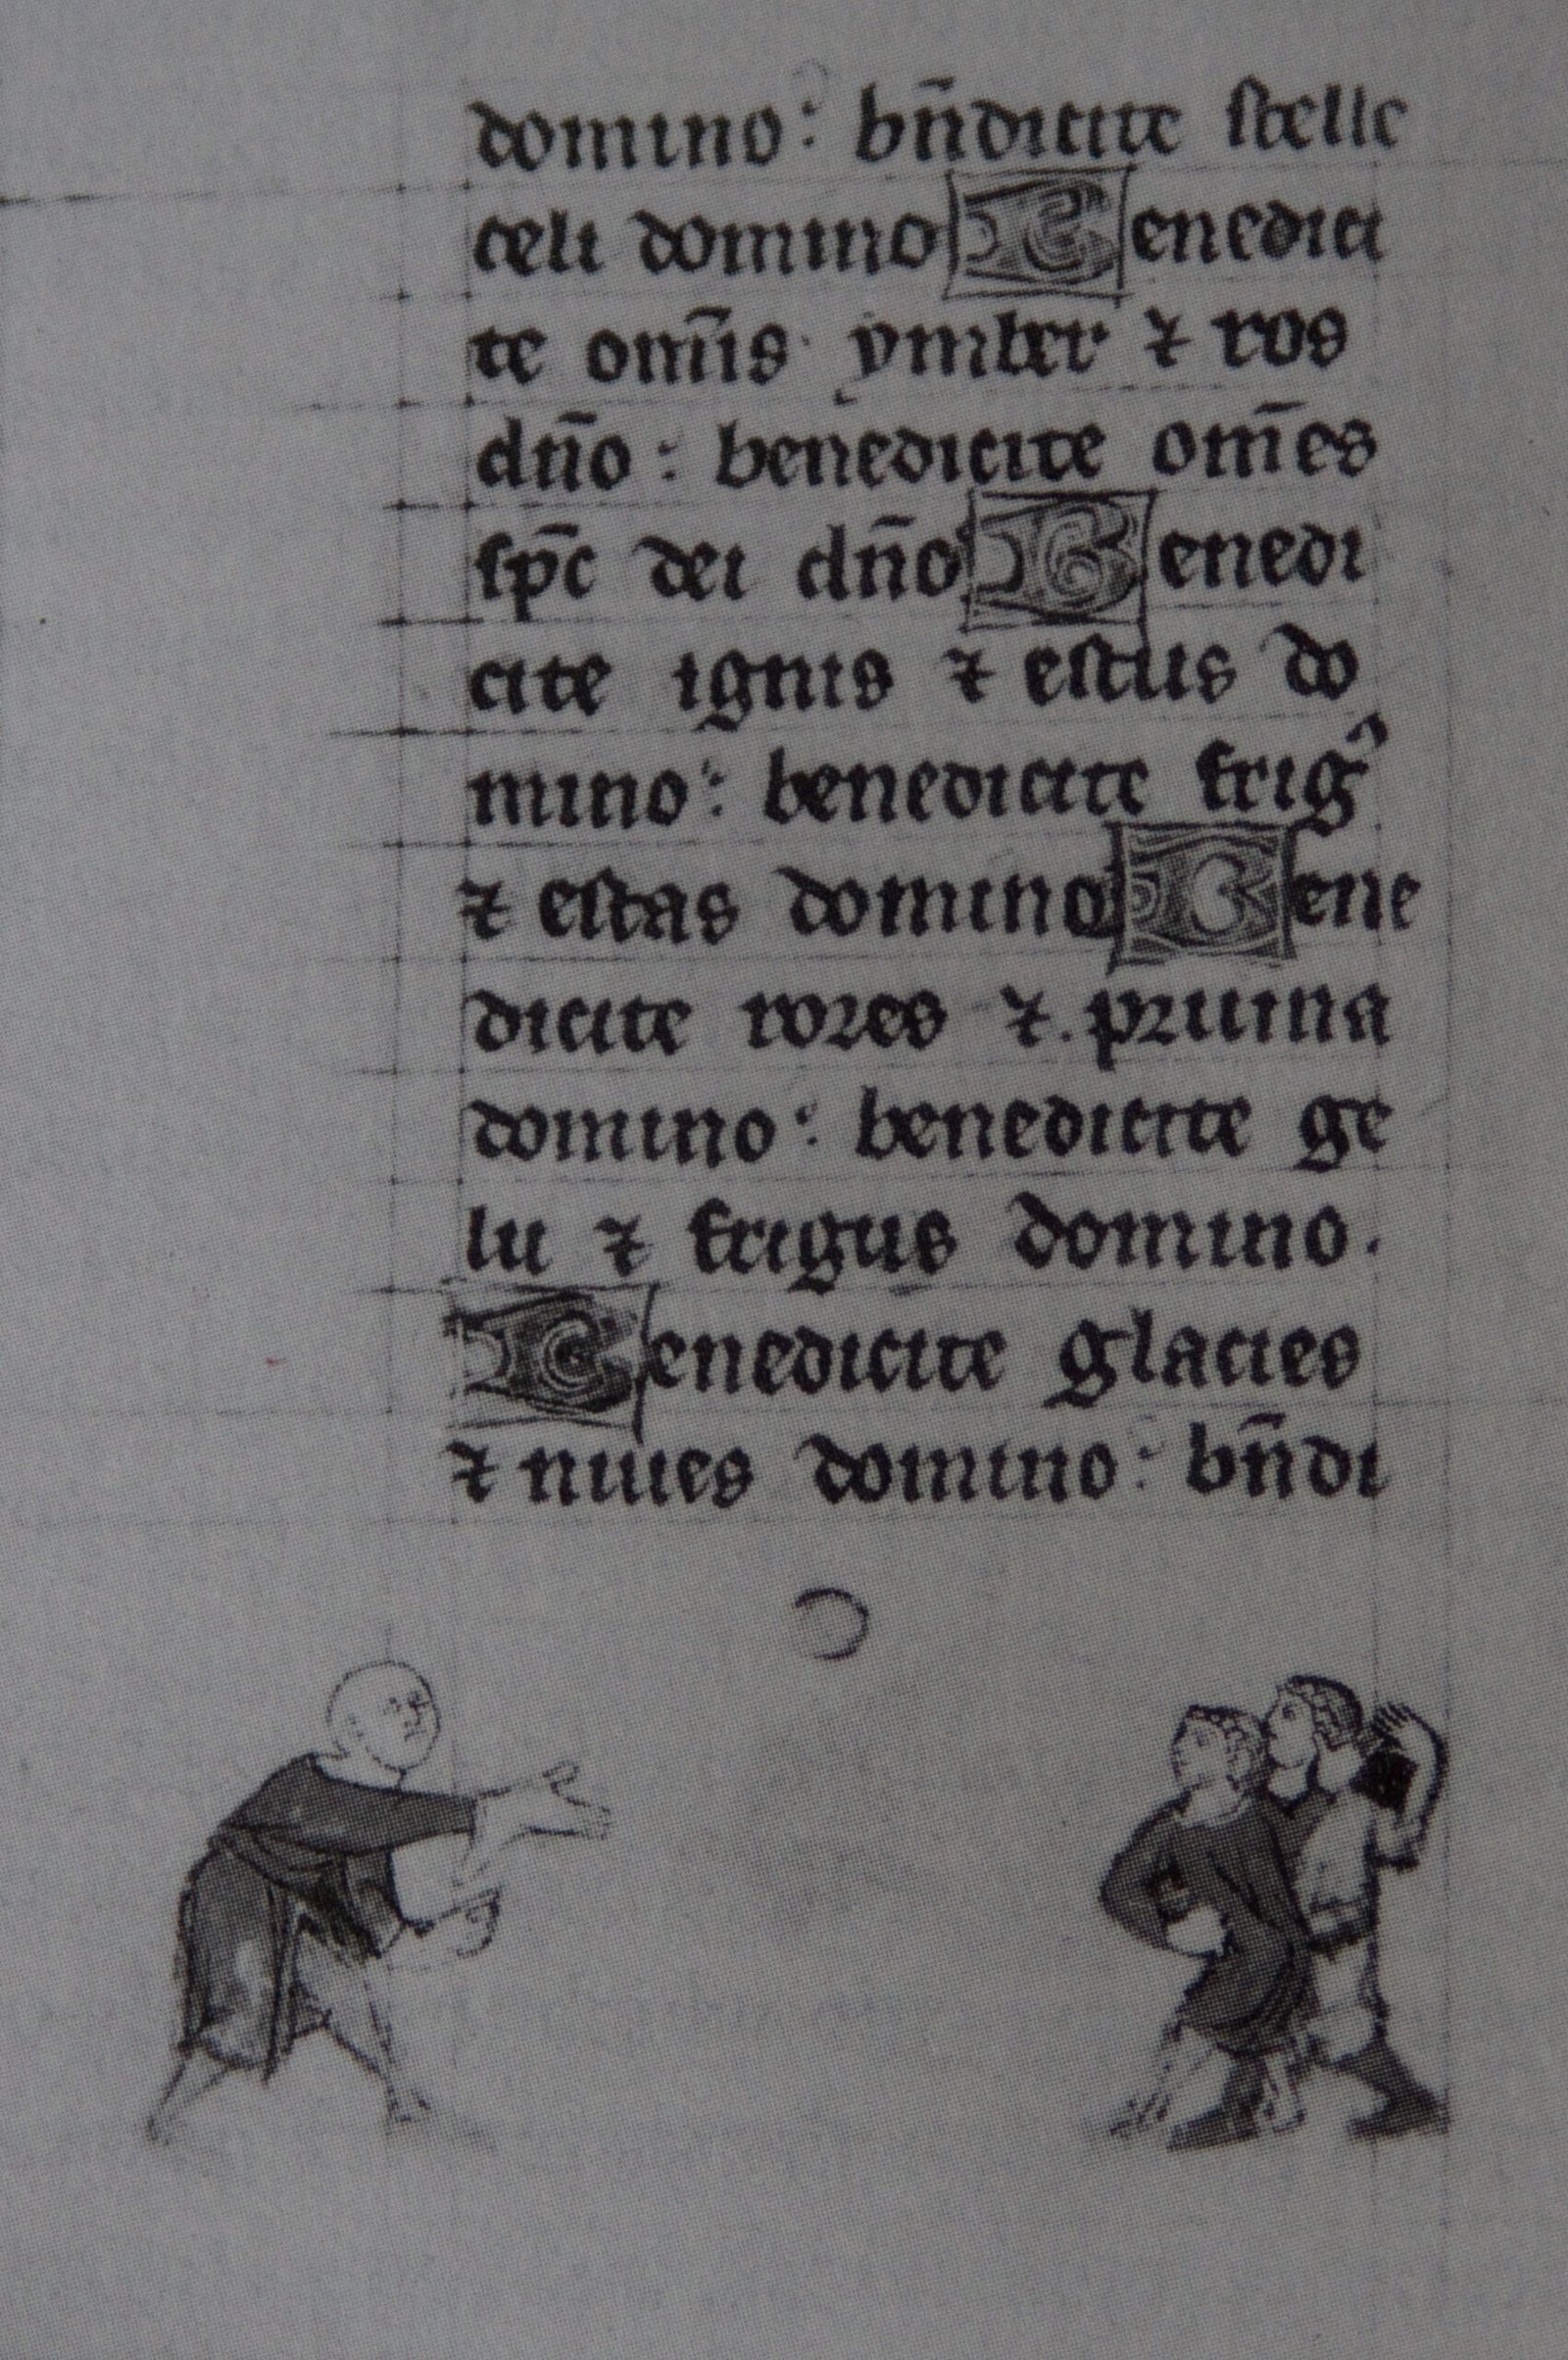 domino: bn̄dicite stelle
celi domino Benedici
te om̄is ymber ⁊ ros
dn̄o: benedicite om̄es
sp̄c dei dn̄o Benedi
cite ignis ⁊ estus do
mino: benedicite frigꝰ
⁊ estas domino Bene
dicite rores ⁊. pruina
domino: benedicite ge
lu ⁊ frigus domino.
Benedicite glacies
⁊ niues domino: bn̄di